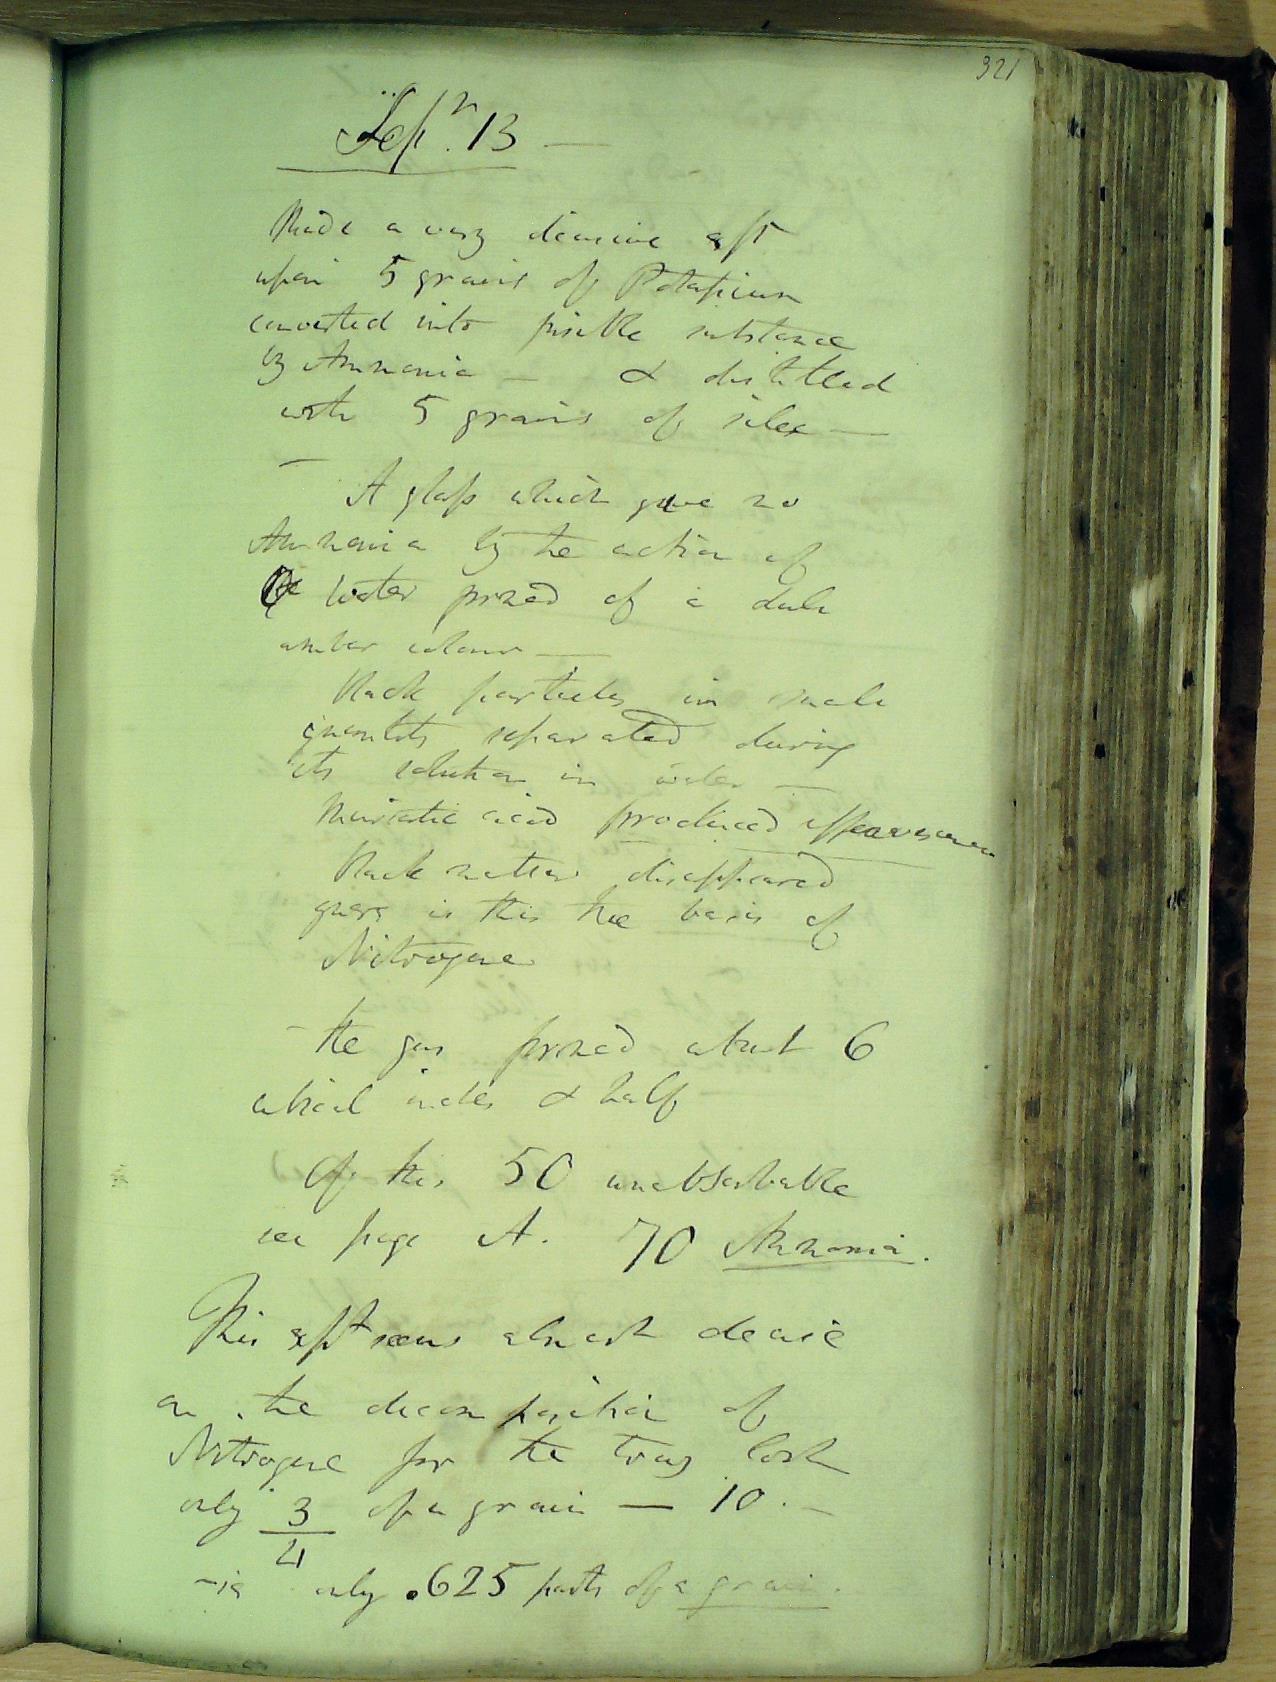 321
Sepr. 13 —
Made a very decisive expt
upon 5 grains of Potassium
converted into fusible substance
by Ammonia — & distilled
with 5 grains of silex —
— A glass which gave no
Ammonia by the action of
water formed of a dark
amber colour —
Black particles in small
quantity separated during
its solution in water —
Muriatic acid produced effervescence
Black matter disappeared
quere is this the basis of
Nitrogene
— the gas formed about 6
cubical inches & half —
Of this 50 unabsorbable
see page A. 70 Ammonia.
This expt seems almost decisive
on the decomposition of
Nitrogene for the tray lost
only 3/4 of a grain — 10. —
— is only .625 parts of a grain.